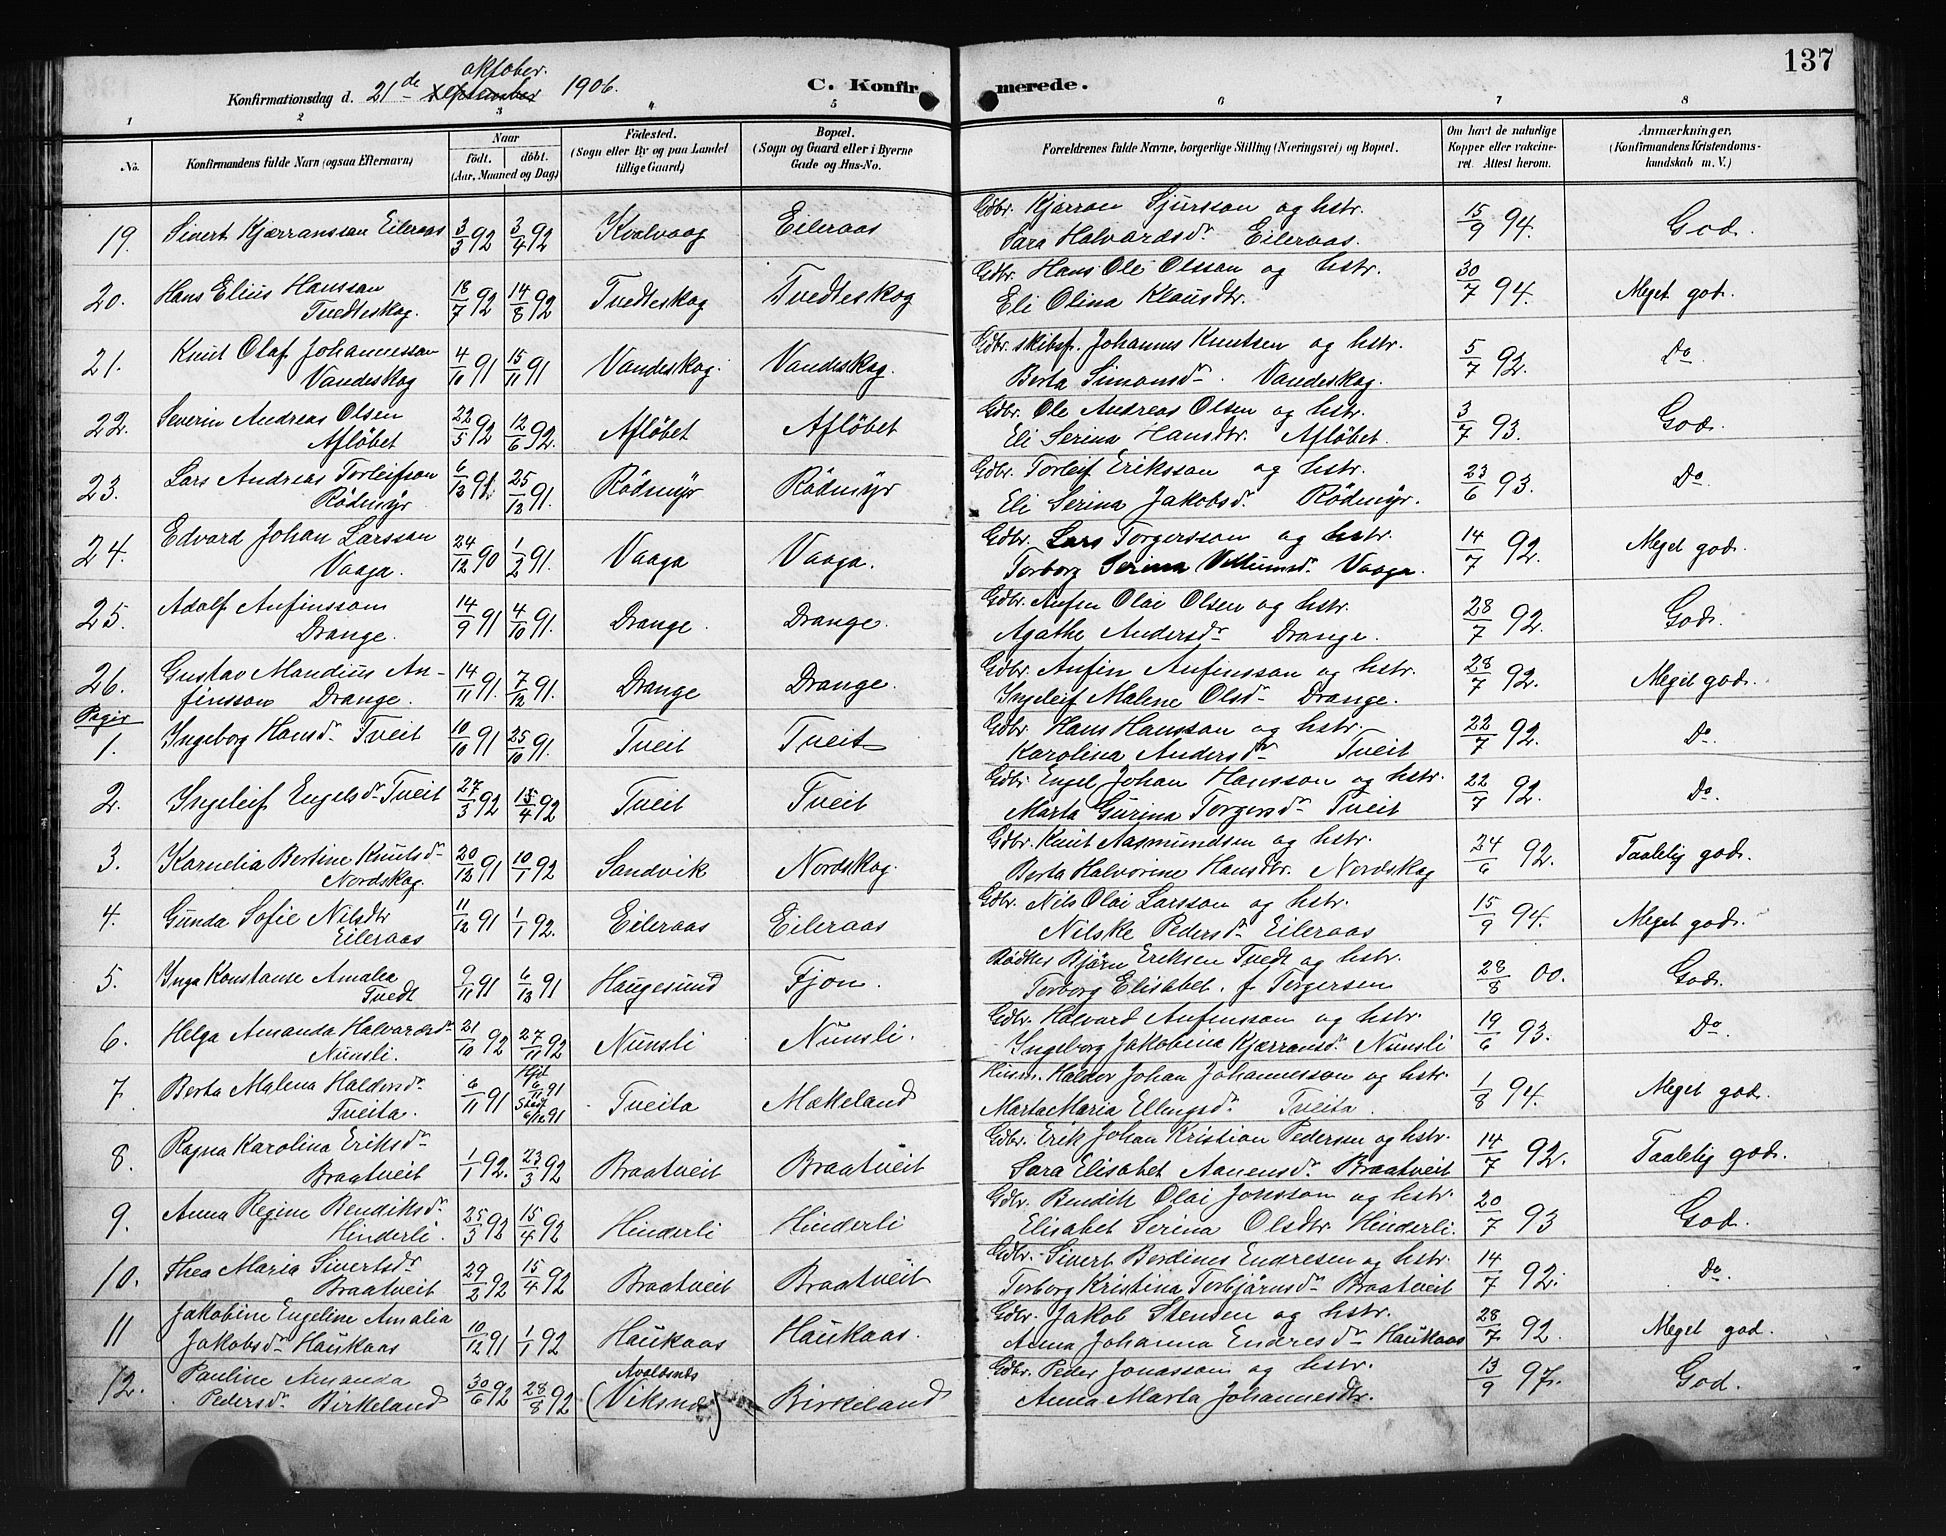 137
oktober.
Konfirmationsdag d. 21de september 1906.
C. Konfirmerede.
1 2 3 4 5 6 7 8
No. Konfirmandens fulde Navn (ogsaa Efternavn) Naar født. døbt. (Aar, Maaned og Dag) Födested. (Sogn eller By og paa Landet tillige Gaard) Bopæl. (Sogn og Gaard eller i Byerne Gade og Hus-No. Forældrenes fulde Navne, borgerlige Stilling (Næringsvei) og Bopæl. Om havt de naturlige Kopper eller vaccineret. Attest herom. Anmærkninger, (Konfirmandens Kristendomskundskab m. V.)
19. Sivert Kjærransson Eileraas 3/3 92 3/4 92 Kvalvaag Eileraas Gdbr. Kjærran Sjursson og hstr. Sara Halvardsdr. Eileraas. 15/9 94. God.
20. Hans Elius Hansson Tvedteskog. 18/7 92 14/8 92 Tvedteskog Tvedteskog Gdbr. Hans Ole Olsson og hstr. Eli Olina Klausdtr. 30/7 94. Meget god.
21. Knut Olaf Johannesson Vandeskog 4/10 91 15/11 91 Vandeskog. Vandeskog. Gdbr. skibsf. Johannes Knutsen og hstr. Berta Simonsdr. Vandeskog. 5/7 92. Do.
22. Severin Andreas Olsen Afløbet 22/5 92 12/6 92. Afløbet Afløbet Gdbr. Ole Andreas Olsen og hstr. Eli Serina Hansdtr. Afløbet. 3/7 93. God.
23. Lars Andreas Torleifson Rødmyr 6/12 91. 25/12 91. Rødmyr Rødmyr Gdbr. Torleif Eriksson og hstr. Eli Serina Jakobsdr. Rødmyr. 23/6 93. Do.
24. Edvard Johan Larsson Vaaga. 24/12 90 1/2 91. Vaaga Vaaga. Gdbr. Lars Torgersson og hstr. Torborg Serina Villumsdr. Vaaga. 14/7 92. Meget god.
25. Adolf Anfinssom Drange. 14/9 91 4/10 91. Drange. Drange. Gdbr. Anfin Olai Olsen og hstr. Agathe Andersdr. Drange. 28/7 92. God.
26. Gustav Mandius Anfinsson Drange. 14/11 91. 7/12 91. Drange Drange. Gdbr. Anfin Anfinsson og hstr. Ingeleif Malene Olsdr. Drange. 28/7 92. Meget god.
Pagir
1. Ingeborg Hansdr. Tveit 10/10 91 25/10 91. Tveit Tveit Gdbr. Hans Hansson og hstr. Karolina Andersdr. Tveit 22/7 92. Do.
2. Ingeleif Engelsdr. Tveit 27/3 92 15/4 92 Tveit Tveit Gdbr. Engel Johan Hansson og hstr. Marta Gurina Torgersdr. Tveit 22/7 92. Do.
3. Kornelia Bertine Knutsdr. Nordskog. 20/12 91 10/1 92 Sandvik Nordskog. Gdbr. Knut Aasmundsen og hstr. Berta Halvorine Hansdtr. Nordskog 24/6 92. Taalelig god.
4. Gunda Sofie Nilsdtr Eileraas 11/12 91 1/1 92. Eileraas Eileraas Gdbr. Nils Olai Larsson og hstr. Nilske Pedersdr. Eileraas 15/9 94. Meget god.
5. Inga Konstanse Amalia Tvedt 9/11 91 6/12 91 Haugesund Fjon. Bødker Bjørn Eriksen Tvedt og hstr. Torborg Elisabet f. Torgersen 28/8 00. God.
6. Helga Amanda Halvardsdr. Nunsli. 21/10 92 27/11 92 Nunsli Nunsli. Gdbr. Halvard Anfinsson og hstr. Ingeborg Jakobina Kjærransdr. Nunsli 19/6 93. Do.
7 Berta Malena Haldorsdr. Tveita. 6/11 91 Hjd. 6/11 91 Stadf. 6/12 91 Tveita Mækeland Husm. Haldor Johan Johannesson og hstr. Marta Maria Ellingsdr. Tveita. 1/8 94. Meget god.
8. Ragna Karolina Eriksdr. Braatveit 1/1 92. 23/3 92 Braatveit Braatveit Gdbr. Erik Johan Kristian Pedersen og hstr. Sara Elisabet Aanensdr. Braatveit 14/7 92. Taalelig god.
9. Anna Regine Bendiksdr. Hinderli. 25/3 92 15/4 92 Hinderli Hinderli Gdbr. Bendik Olai Jonsson og hstr. Elisabet Serina Olsdtr. Hinderli. 20/7 93 God.
10. Thea Maria Sivertsdr. Braatveit 29/2 92 15/4 92 Braatveit Braatveit Gdbr. Sivert Berdines Endresen og hstr. Torborg Kristina Torbjørnsdr. Braatveit 14/7 92. Do.
11 Jakobine Engeline Amalia Jakobsdr. Haukaas 10/12 91 1/1 92 Haukaas Haukaas. Gdbr. Jakob Stensen og hstr. Anna Johanna Endresdr. Haukaas 28/7 92. Meget god.
12. Pauline Amanda Pedersdr. Birkeland 30/6 92 28/8 92 Avaldsnes (Viksnæs) Birkeland Gdbr. Peder Jonassom og hstr. Anna Marta Johannesdtr. 13/9 97. God.